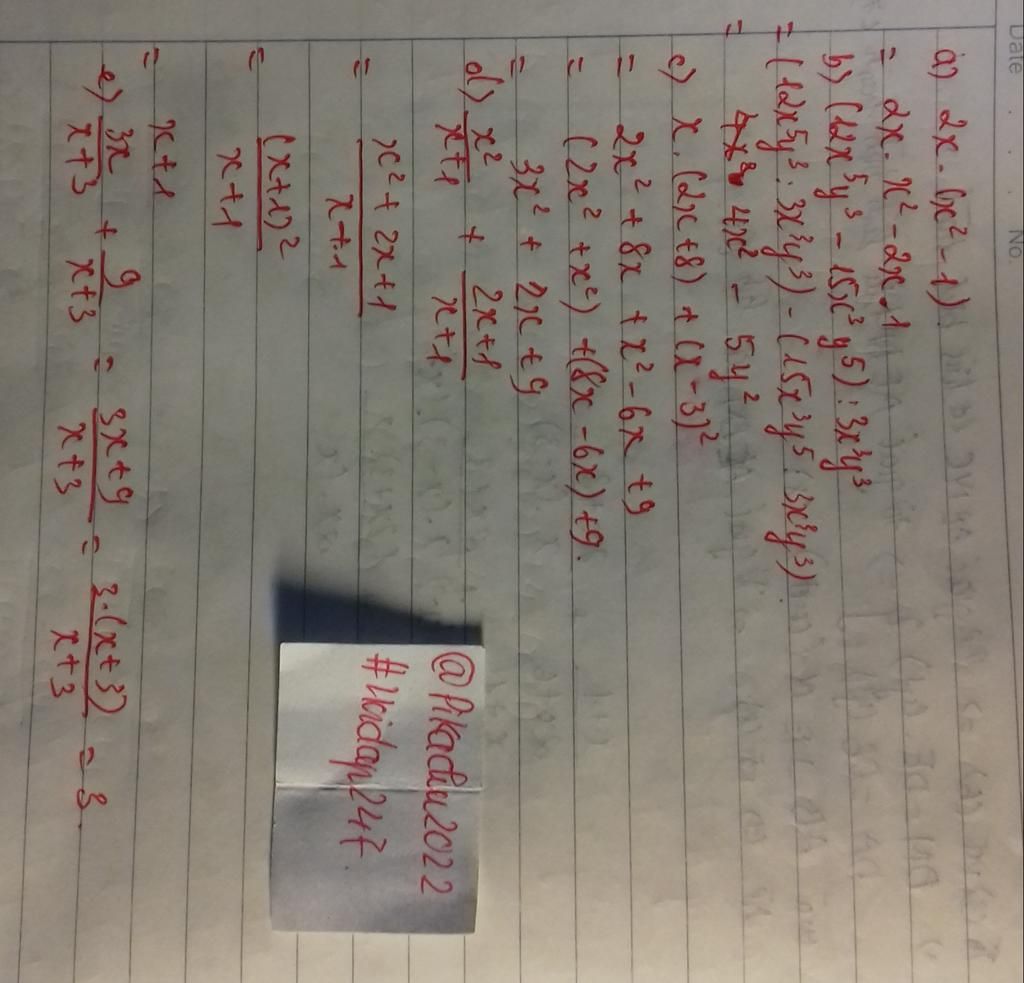 Date . . . No.
a) 2x. (x² - 1)
= 2x. x² - 2x.1
b) (12x⁵y³ - 15x³y⁵) : 3x³y³
= (12x⁵y³ : 3x³y³) - (15x³y⁵ : 3x³y³)
= 4x² - 5y²
c) x. (2x+8) + (x-3)²
= 2x² + 8x + x² - 6x + 9
= (2x² + x²) + (8x - 6x) + 9.
= 3x² + 2x + 9
d) x²/x+1 + 2x+1/x+1
= x² + 2x + 1/x+1
= (x+1)²/x+1
= x+1
e) 3x/x+3 + 9/x+3 = 3x+9/x+3 = 3.(x+3)/x+3 = 3.
@Pikachu2022
#Hoidap247.